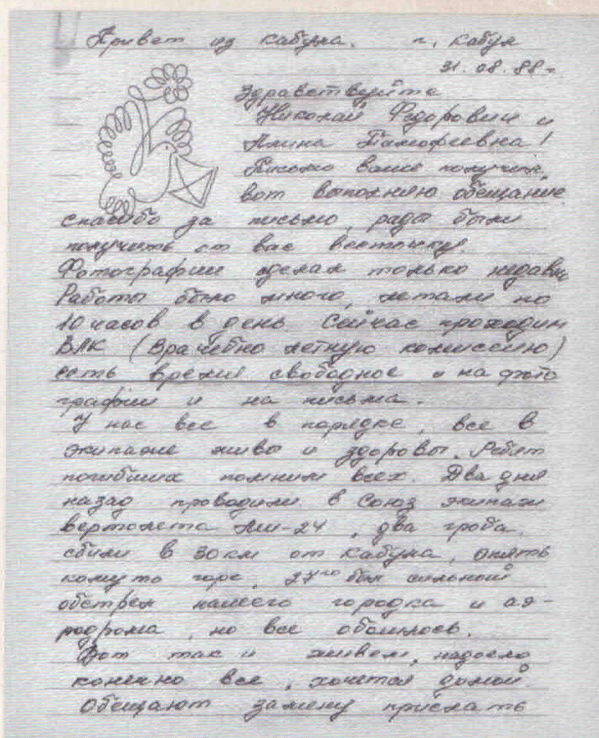 Привет из Кабула. г. Кабул
31.08.88 г.
Здравствуйте
Николай Федорович и
Алина Тимофеевна!
Письмо ваше получил,
вот выполняю обещание.
спасибо за письмо, рады были
получить от вас весточку.
Фотографии сделал только недавно
Работы было много, летали по
10 часов в день Сейчас проходим
ВЛК (Врачебно летную комиссию)
есть время свободное и на фото
графии и на письма.
У нас все в порядке, все в
экипаже живы и здоровы. Ребят
погибших помним всех. Два дня
назад проводили в Союз экипаж
вертолета Ми-24, два гроба,
сбили в 30 км от Кабула, опять
кому то горе, 27го был сильный
обстрел нашего городка и аэ-
родрома, но все обошлось.
Вот так и живем, надоело
конечно все, хочется домой.
Обещают замену прислать